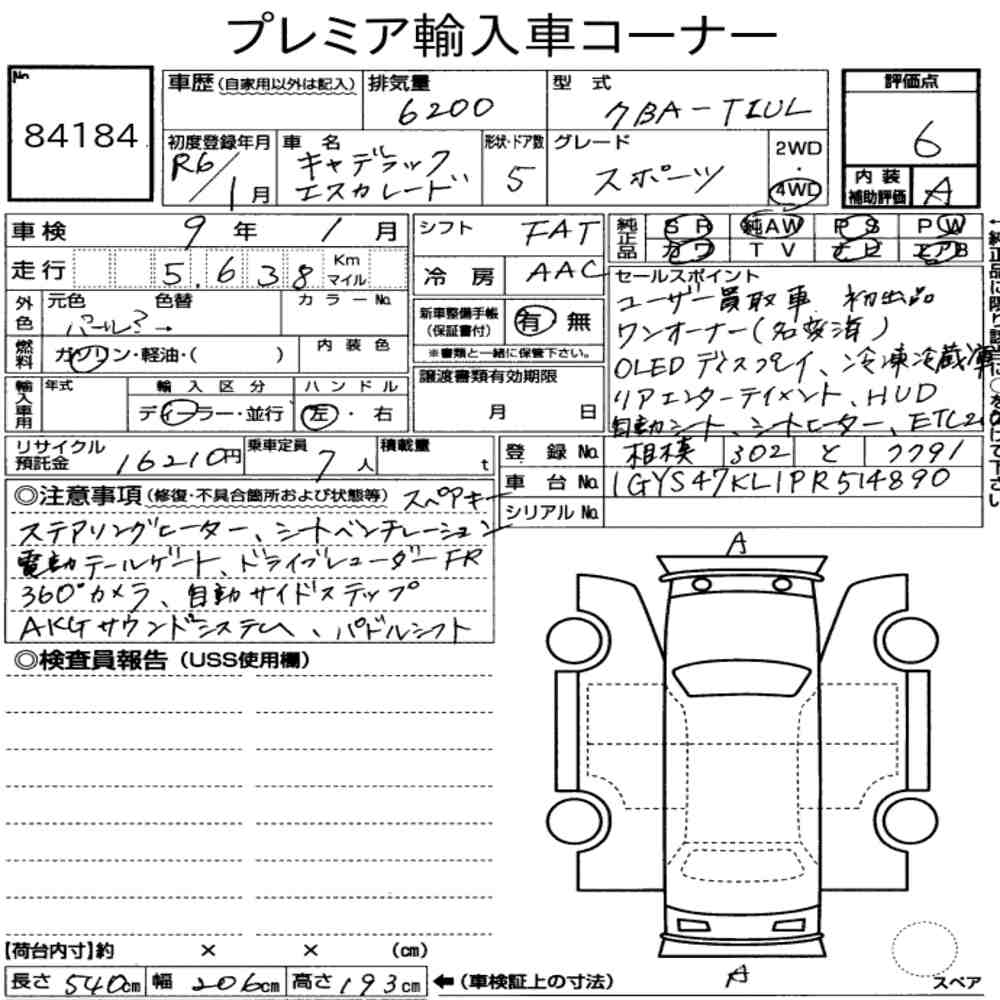 プレミア輸入車コーナー
No.
84184
車歴(自家用以外は記入)
排気量
6200
型式
7BA-T1UL
評価点
6
初度登録年月
R6/1月
車名
キャデラック
エスカレード
形状・ドア数
5
グレード
スポーツ
2WD
・
4WD
内装
補助評価
A
車検 9年 1月
シフト FAT
純正品
SR 純AW PS PW
カワ TV ナビ エアB
走行 5.638 Km
マイル
冷房 AAC
セールスポイント
ユーザー買取車 初出品
ワンオーナー(名変済)
OLEDディスプレイ、冷凍冷蔵庫
リアエンターテイメント、HUD
自動シート、シートヒーター、ETC2.0
外色
元色 色替 カラーNo.
パール?→
新車整備手帳
(保証書付)
有 無
※書類と一緒に保管下さい。
燃料
ガソリン・軽油・( )
内装色
譲渡書類有効期限
月 日
輸入車用
年式 輸入区分 ハンドル
ディーラー・並行 左・右
リサイクル
預託金 16210円
乗車定員 7人
積載量 t
登録No. 相模 302 と 7791
車台No. 1GYS47KL1PR514890
シリアルNo.
◎注意事項(修復・不具合箇所および状態等) スペアキー
ステアリングヒーター、シートベンチレーション
電動テールゲート、ドライブレコーダーFR
360°カメラ、自動サイドステップ
AKGサウンドシステム、パドルシフト
◎検査員報告(USS使用欄)
A
A
【荷台内寸】約 × × (cm)
長さ 540cm 幅 206cm 高さ 193cm
←(車検証上の寸法)
スペア